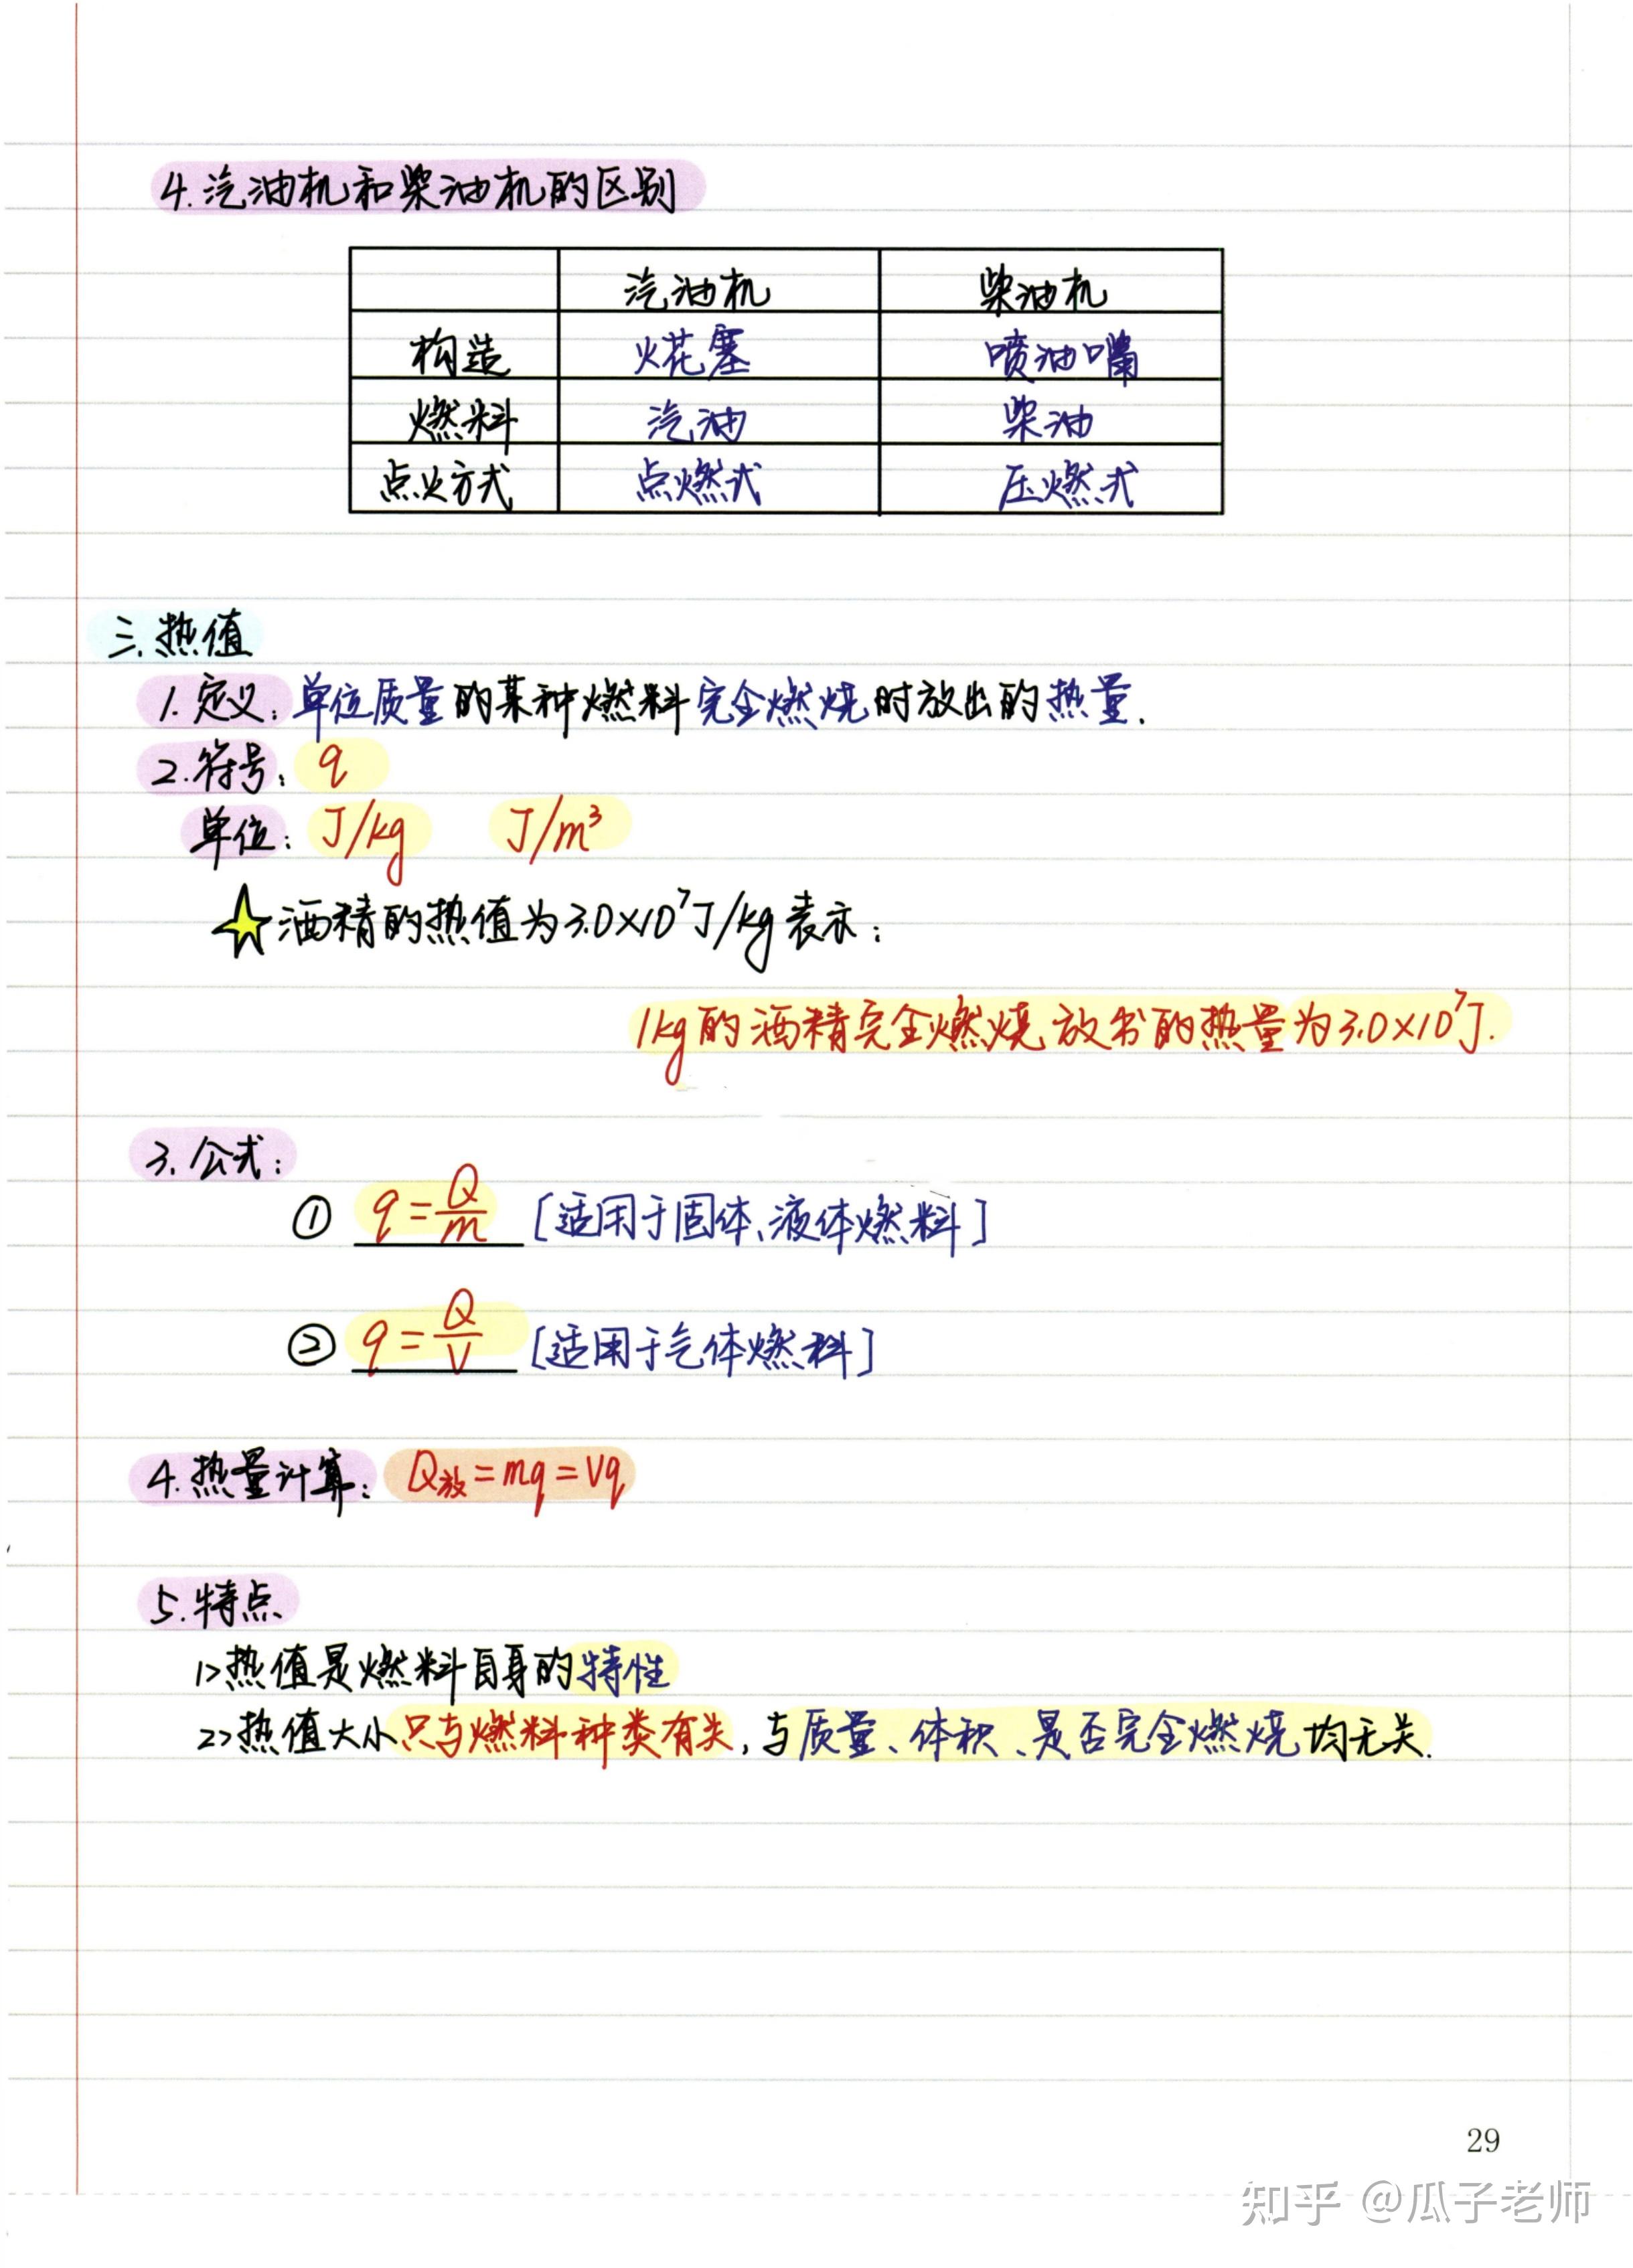 4.汽油机和柴油机的区别
汽油机 柴油机
构造 火花塞 喷油嘴
燃料 汽油 柴油
点火方式 点燃式 压燃式
三.热值
1.定义:单位质量的某种燃料完全燃烧时放出的热量.
2.符号: q
单位: J/kg J/m³
☆酒精的热值为3.0×10⁷J/kg表示:
1kg的酒精完全燃烧放出的热量为3.0×10⁷J.
3.公式:
① q=Q/m [适用于固体、液体燃料]
② q=Q/V [适用于气体燃料]
4.热量计算: Q放=mq=Vq
5.特点
1>热值是燃料自身的特性
2>热值大小只与燃料种类有关,与质量、体积、是否完全燃烧均无关.
29
知乎 @瓜子老师